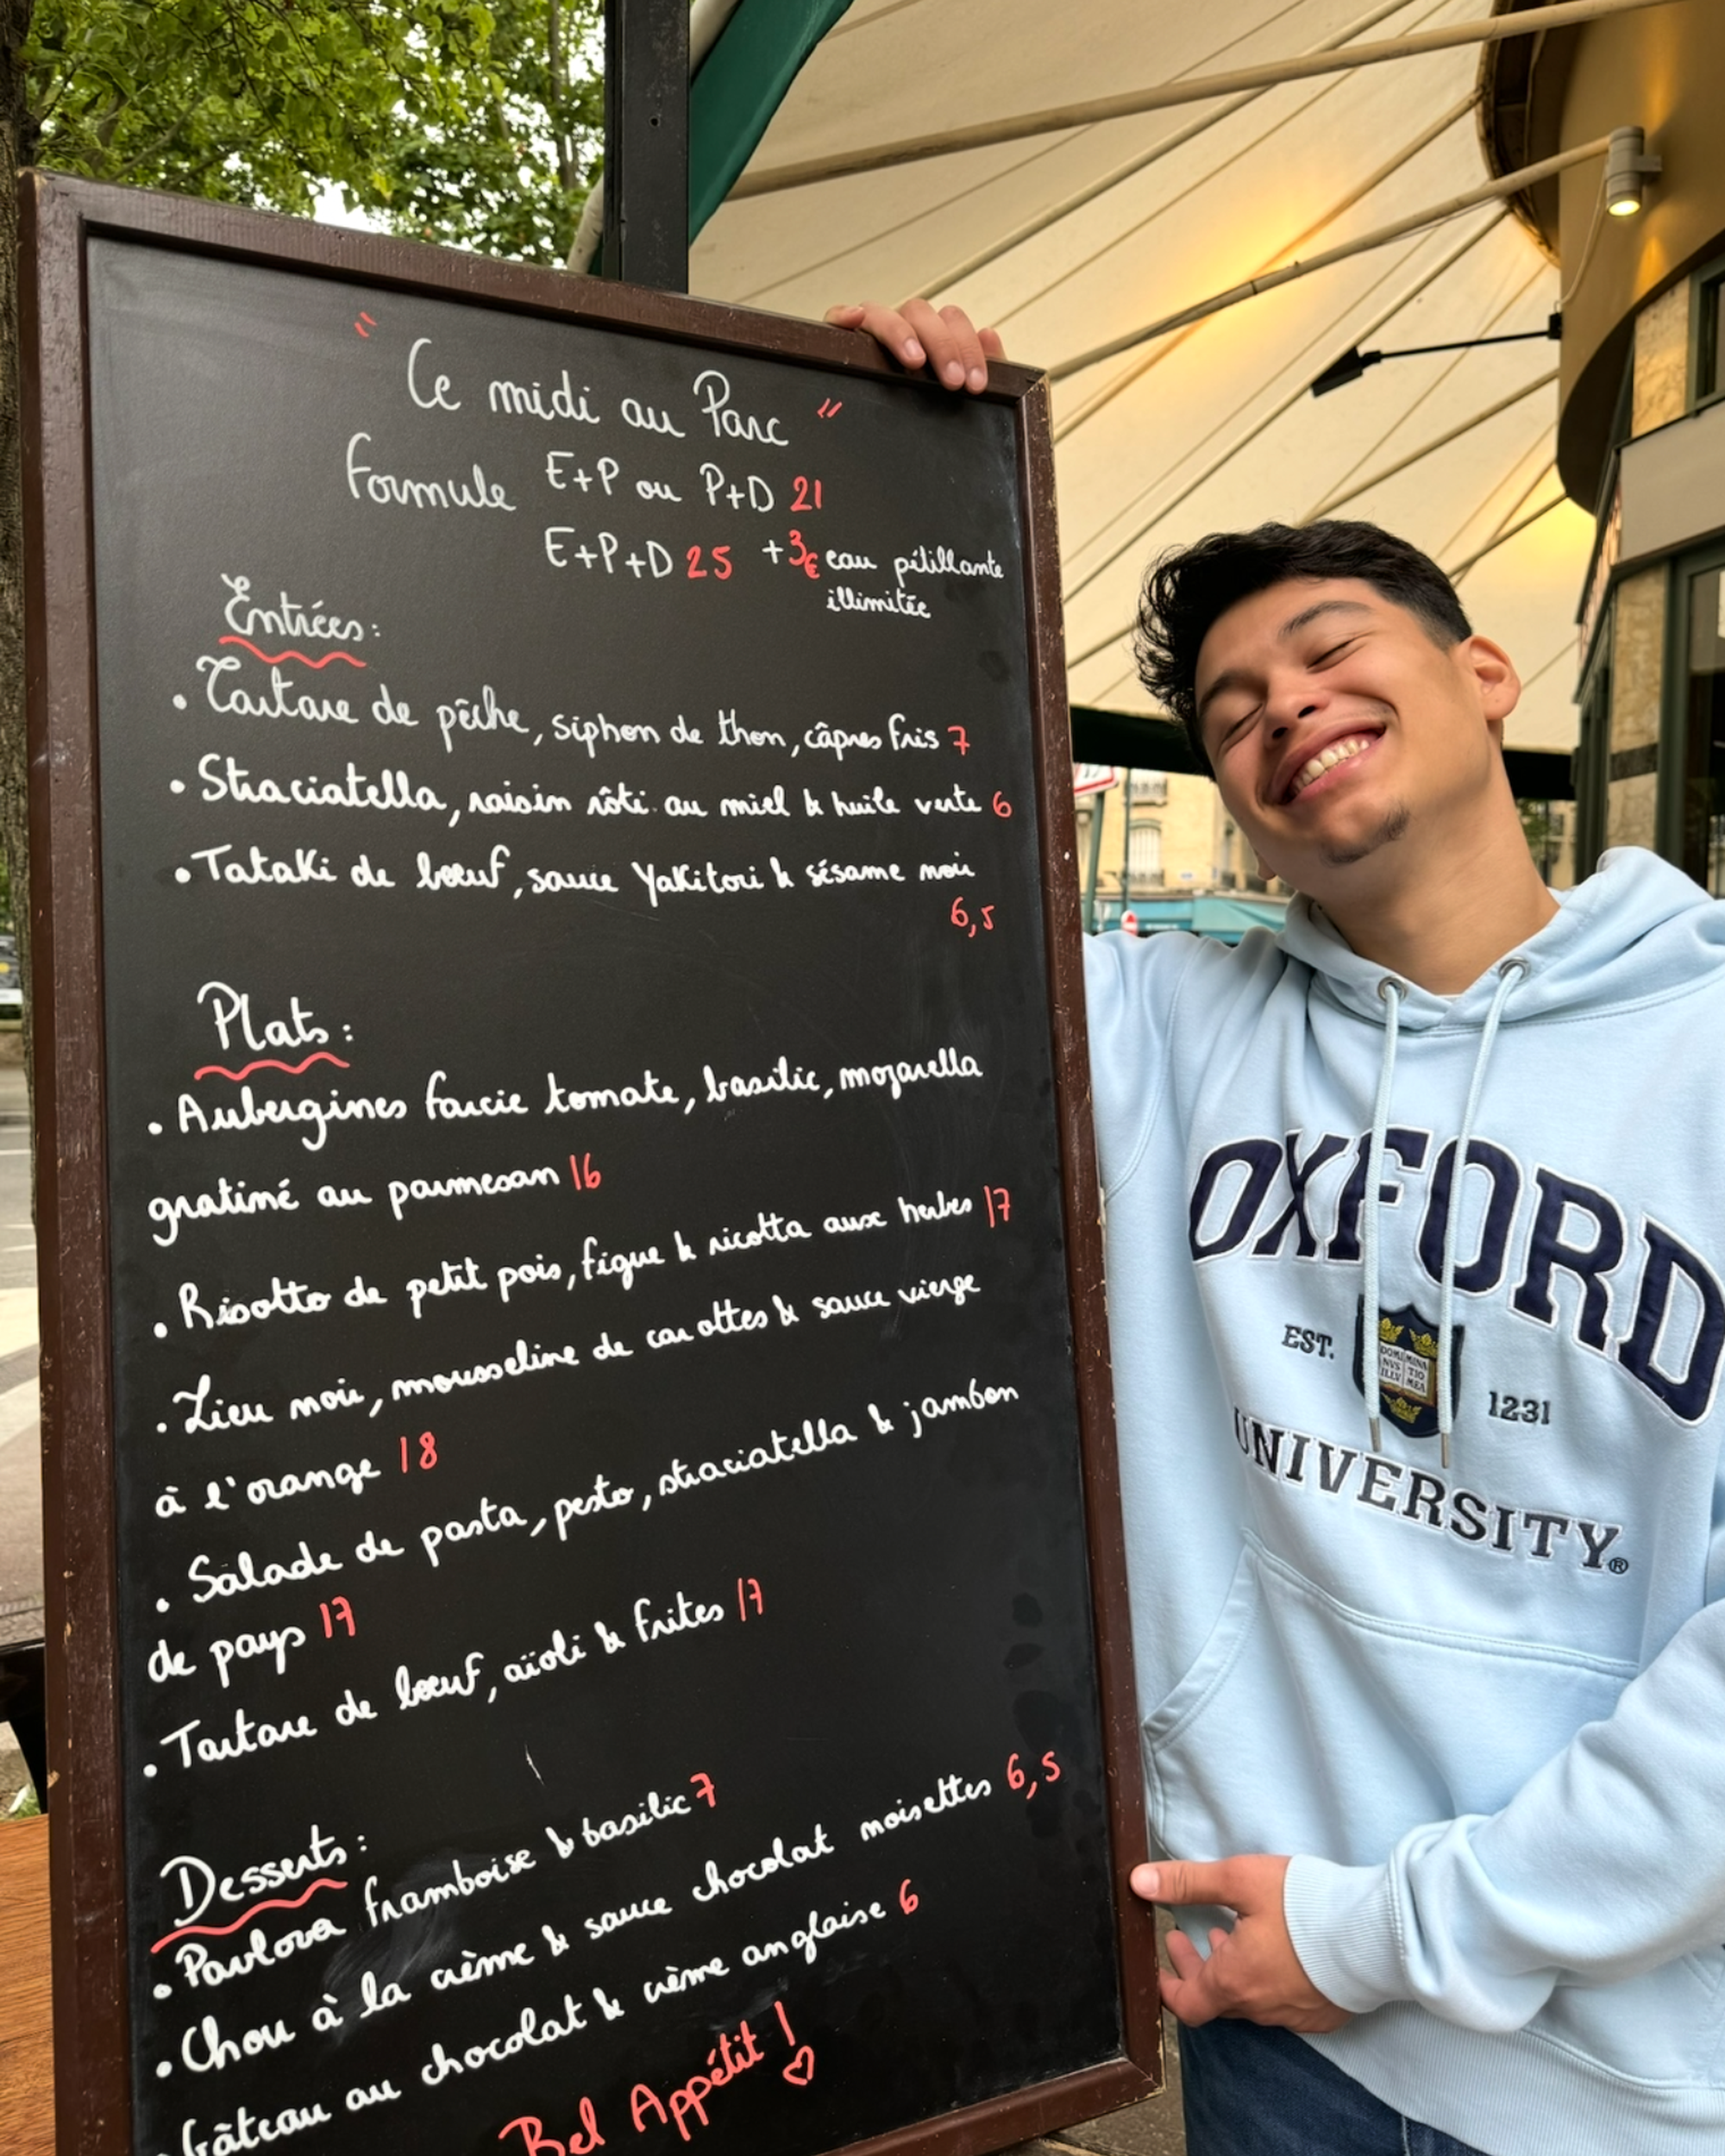 " Ce midi au Parc "
Formule E+P ou P+D 21
E+P+D 25 +3€ eau pétillante
illimitée
Entrées :
• Tartare de pêche, siphon de thon, câpres fris 7
• Straciatella, raisin rôti au miel & huile verte 6
• Tataki de bœuf, sauce Yakitori & sésame noir
6,5
Plats :
• Aubergines farcie tomate, basilic, mozarella
gratiné au parmesan 16
• Risotto de petit pois, figue & ricotta aux herbes 17
• Lieu noir, mousseline de carottes & sauce vierge
à l'orange 18
• Salade de pasta, pesto, straciatella & jambon
de pays 17
• Tartare de bœuf, aïoli & frites 17
Desserts :
• Pavlova framboise & basilic 7
• Chou à la crème & sauce chocolat noisettes 6,5
• Gâteau au chocolat & crème anglaise 6
Bel Appétit ! ♡
OXFORD
EST. 1231
DOMI MINA
NVS TIO
ILLV MEA
UNIVERSITY®